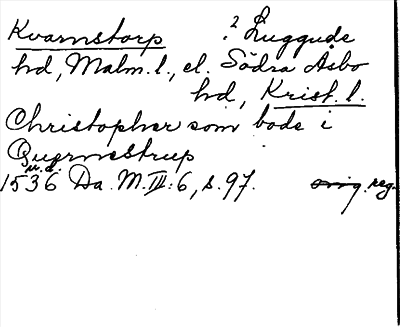 Kvarnstorp ? Luggude
hd, Malm. l., el. Södra Åsbo
hd, Krist. l.
Christopher som bode i
Quernestrup
u. d.
1536 Da. M. III: 6, s. 97. orig. reg.